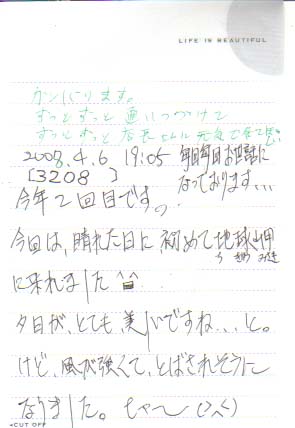 LIFE IS BEAUTIFUL
ガンバります。
ずっとずっと 通いつづけて
ずっとずっと 店長さんに元気で居てほしい
2008.4.6 19:05 毎日毎日お世話に
[3208] なっております、、、
今年2回目です。
今回は、晴れた日に 初めて地球岬
ちきゅうみさき
に来れました ^^
夕日が、とても、美しいですね...と。
けど、風が強くて、とばされそうに
なりました。ちゃ〜(>へ<)
CUT OFF